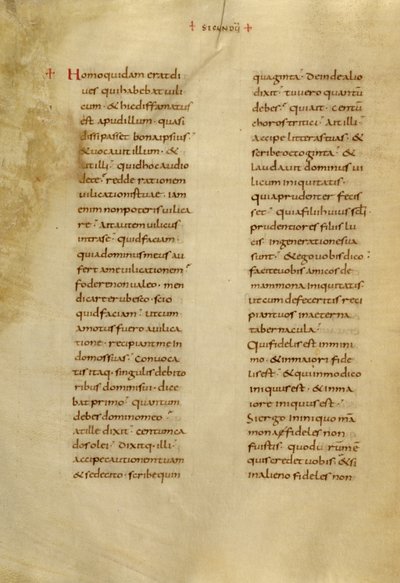 ✝ SECUNDŪ ✝
✝ Homo quidam erat di
ves qui habebat vili
cum · & hic diffamatus
est apud illum · quasi
dissipasset bona ipsius ·
& vocavit illum · &
ait illi · quid hoc audio
de te · redde rationem
vilicationis tuae · iam
enim non poteris vilica
re · Ait autem vilicus
intra se · quid faciam ·
quia dominus meus au
fert a me vilicationem
fodere non valeo · men
dicare erubesco · scio
quid faciam · ut cum
amotus fuero a vilica
tione · recipiant me in
domos suas · Convoca
tis itaq· singulis debito
ribus domini sui · dice
bat primo · quantum
debes domino meo ·
at ille dixit · centum ca
dos olei · dixitq· illi ·
accipe cautionem tuam
& sede cito · scribe quin
quaginta · deinde alio
dixit · tu vero quantū
debes · qui ait · centū
choros tritici · Ait illi ·
accipe litteras tuas · &
scribe octoginta · &
laudavit dominus vi
licum iniquitatis ·
quia prudenter fecis
set · quia filii huius scli
prudentiores filiis lu
cis in generatione sua
sunt · & ego vobis dico ·
facite vobis amicos de
mammona iniquitatis
ut cum defeceritis reci
piant vos in aeterna
tabernacula ·
Qui fidelis est in mini
mo · & in maiori fide
lis est · & qui in modico
iniquus est · & in ma
iore iniquus est ·
Si ergo in iniquo mā
mona fideles non
fuistis · quod verum ē
quis credet vobis · & si
in alieno fideles non